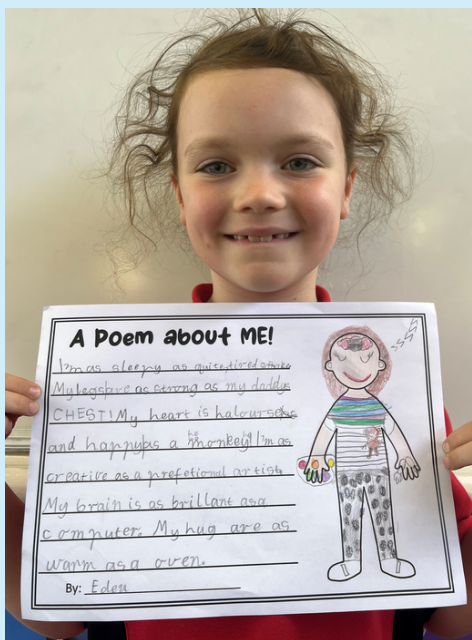 A Poem about ME!
I'm as sleepy as
My legs are as strong as my daddys
CHEST! My heart is
and happy as a monkey! I'm as
creative as a prefetional artist.
My brain is as brillant as a
computer. My hug are as
warm as a oven.
By: Eden